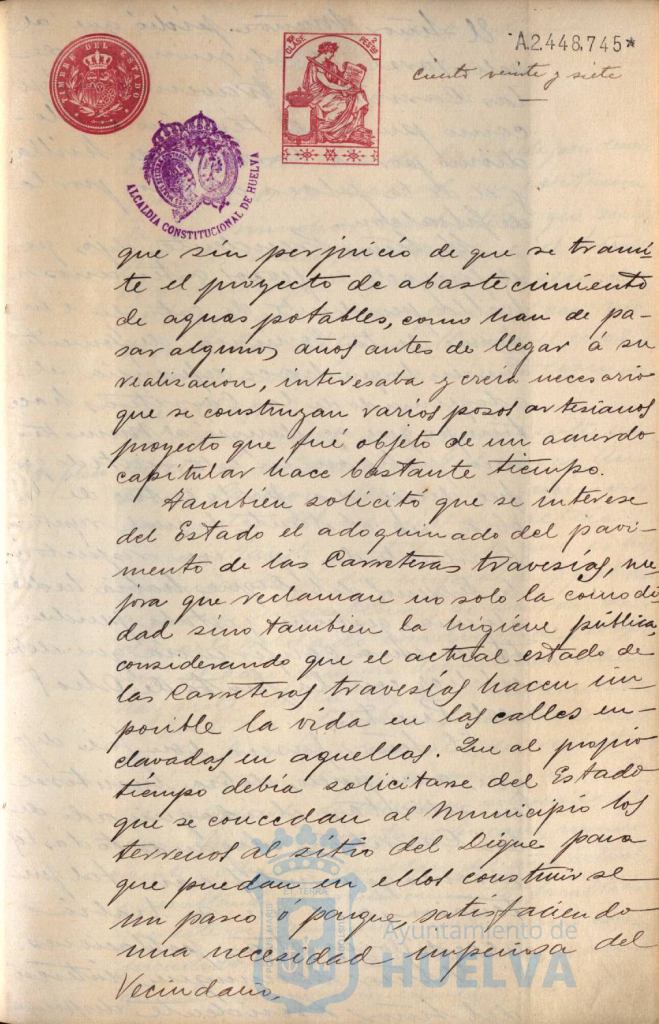 TIMBRE DEL ESTADO
10ª CLASE
2 PESETAS
A.2.448.745*
ciento veinte y siete
ALCALDIA CONSTITUCIONAL DE HUELVA
que sin perjuicio de que se trami-
te el proyecto de abastecimiento
de aguas potables, como han de pa-
sar algunos años antes de llegar á su
realización, interesaba y creia necesario
que se construyan varios posos artesianos
proyecto que fué objeto de un acuerdo
capitular hace bastante tiempo.
Tambien solicitó que se interese
del Estado el adoquinado del pavi-
mento de las Carreteras travesías, me-
jora que reclaman no solo la comodi-
dad sino tambien la higiene pública,
considerando que el actual estado de
las Carreteras travesías hacen im-
posible la vida en las calles en-
clavadas en aquellas. Que al propio
tiempo debía solicitarse del Estado
que se concedan al Municipio los
terrenos al sitio del Dique para
que puedan en ellos construirse
un paseo ó parque, satisfaciendo
una necesidad impensa del
Vecindario.
Ayuntamiento de
HUELVA